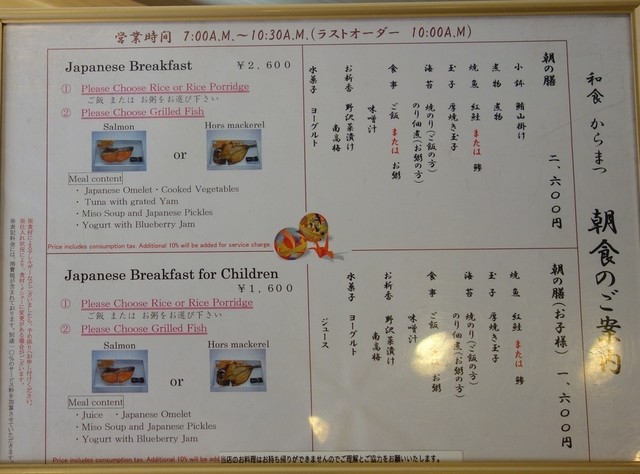 営業時間 7:00A.M.～10:30A.M.(ラストオーダー 10:00A.M)
Japanese Breakfast ￥2,600
① Please Choose Rice or Rice Porridge
ご飯 または お粥をお選び下さい
② Please Choose Grilled Fish
Salmon or Hors mackerel
Meal content
・Japanese Omelet・Cooked Vegetables
・Tuna with grated Yam
・Miso Soup and Japanese Pickles
・Yogurt with Blueberry Jam
Price includes consumption tax. Additional 10% will be added for service charge.
朝の膳 二、六〇〇円
小鉢 鮪山掛け
煮物 煮物
焼魚 紅鮭 または 鯵
玉子 厚焼き玉子
海苔 焼のり(ご飯の方)
のり佃煮(お粥の方)
食事 ご飯 または お粥
味噌汁
お新香 野沢菜漬け
南高梅
水菓子 ヨーグルト
Japanese Breakfast for Children
￥1,600
① Please Choose Rice or Rice Porridge
ご飯 または お粥をお選び下さい
② Please Choose Grilled Fish
Salmon or Hors mackerel
Meal content
・Juice ・Japanese Omelet
・Miso Soup and Japanese Pickles
・Yogurt with Blueberry Jam
Price includes consumption tax. Additional 10%
当店のお料理はお持ち帰りができませんのでご理解とご協力をお願いいたします。
朝の膳(お子様) 一、六〇〇円
焼魚 紅鮭 または 鯵
玉子 厚焼き玉子
海苔 焼のり(ご飯の方)
のり佃煮(お粥の方)
食事 ご飯
味噌汁
お新香 野沢菜漬け
南高梅
水菓子 ヨーグルト
ジュース
和食 からまつ
朝食のご案内